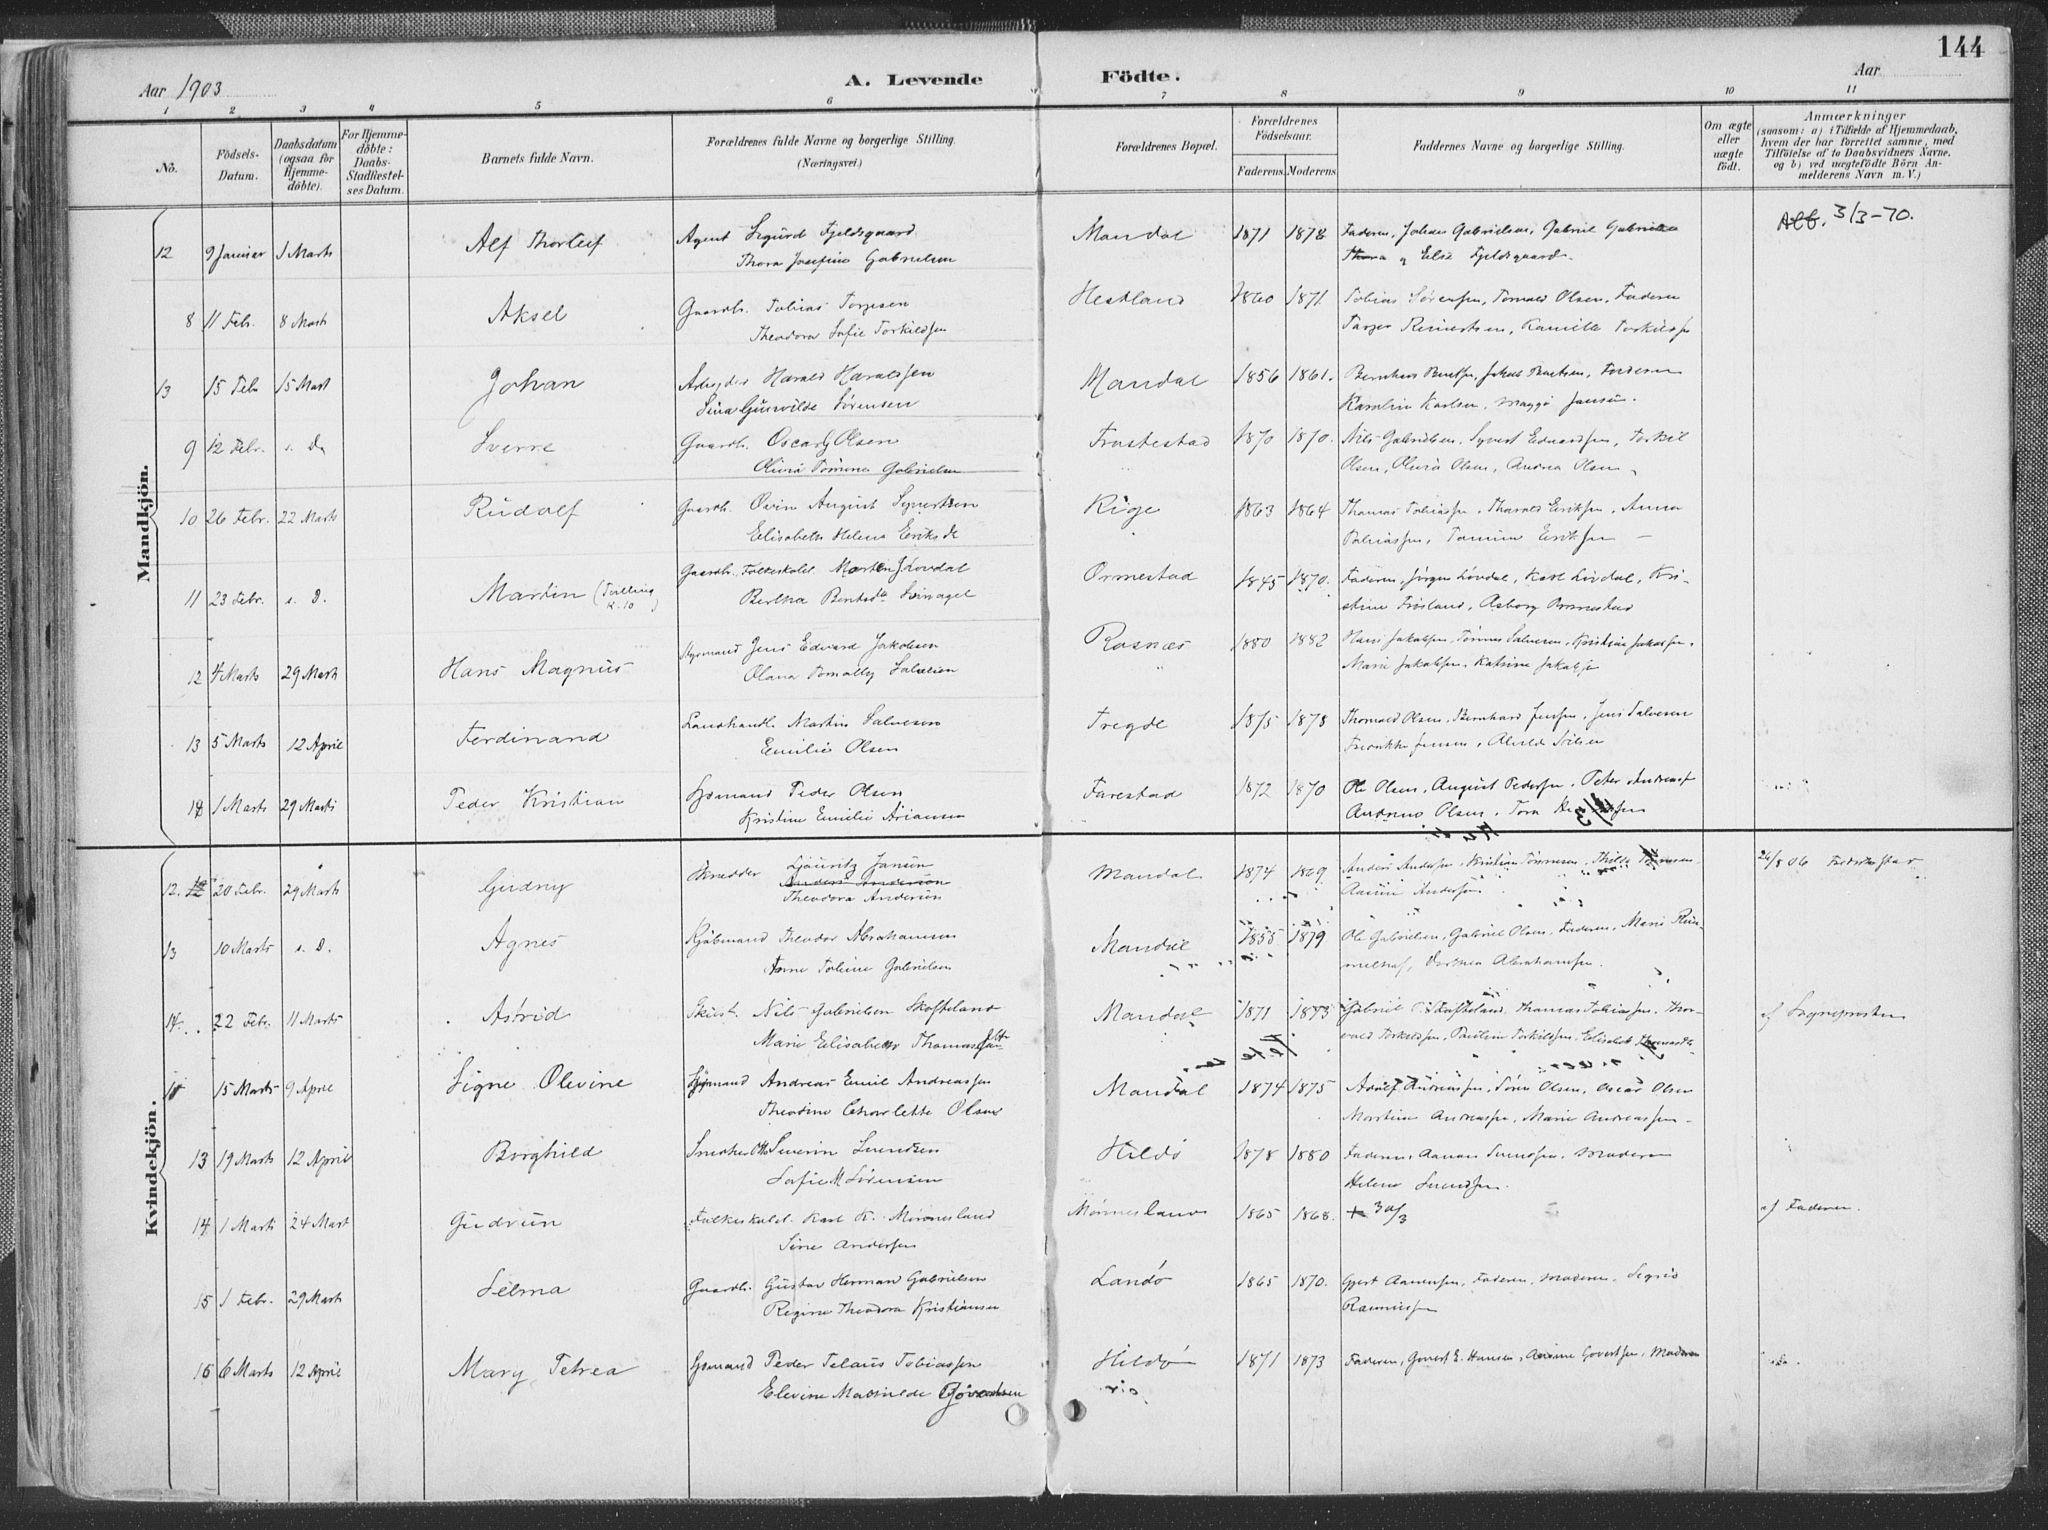 144
Aar 1903
A. Levende
Födte.
Aar
1 2 3 4 5 6 7 8 9 10 11
No.
Födsels-Datum.
Daabsdatum (ogsaa for Hjemme-döbte).
For Hjemme-döbte: Daabs-Stadfæstel-ses Datum.
Barnets fulde Navn.
Forældrenes fulde Navne og borgerlige Stilling.
(Næringsvei.)
Forældrenes Bopæl.
Forældrenes Födselsaar.
Faderens. Moderens.
Faddernes Navne og borgerlige Stilling.
Om ægte eller uægte födt.
Anmærkninger
(saasom: a) i Tilfælde af Hjemmedaab, hvem der har forrettet samme, med Tilföielse af to Daabsvidners Navne, og b) ved uægtefödte Börn An-melderens Navn m. V.)
Mandkjön.
12 9 Januar 1 Marts Alf Thorleif Agent Sigurd Fjeldsgaard Mandal 1871 1878 Faderen, Johan Gabrielsen, Gabriel Gabrielsen Alb. 3/3-70.
Thora Josefine Gabrielsen Thora og Else Fjeldsgaard.
8 11 Febr. 8 Marts Aksel Gaardb. Tobias Torjesen Hestland 1860 1871 Tobias Sørensen, Tomald Olsen, Faderen
Theodora Sofie Torkildsen Torjes Reinertsen, Kamilla Torkildsen
13 15 Feb 15 Mart Johan Arbeyder Harald Haraldsen Mandal 1856 1861. Faderen
Sina Gunvilde Sørensen Karoline Karlsen, Maggi Jansen.
9 12 Febr. s. D. Sverre Gaardb. Oscar Olsen Frøstestad 1870 1870. Nils Gabrielsen, Syvert Edvardsen, Torkil
Olivia Tomine Gabrielsen Olsen, Olivia Olsen, Andrea Olsen
10 26 Febr. 22 Marts Rudolf Gaardb. Ovin August Syvertsen Rige 1863 1864 Thomas Tobiassen, Tharald Eriksen, Anna
Elisabeth Helene Eriksdt Tobiassen, Tomine Eriksen
11 23 Febr. s. D. Martin (Tvilling K. 10) Gaardb. Folkeskolel. Morten J Lovdal Ormestad 1845 1870. Faderen, Jørgen Lövdal, Karl Lövdal, Kri-
Bertha Bentsdt Svinagel stine Frøsland, Asborg Ormestad
12 4 Marts 29 Marts Hans Magnus Styrmand Jens Edvard Jakobsen Rosnæs 1880 1882 Hans Jakobsen, Tønnes Salvesen, Kristian Jakobsen,
Olana Tomally Salvesen Marie Jakobsen, Katrine Jakobsen
13 5 Marts 12 April Ferdinand Landhandl. Martin Salvesen Tregde 1875 1878 Thorvald Olsen, Bernhard Jensen, Jens Salvesen
Emilie Olsen Fredrikke Jensen
14 1 Marts 29 Marts Peder Kristian Sjømand Peder Olsen Farestad 1872 1870 Ole Olsen, August Pedersen, Peter Andreas
Kristine Emilie Arianson Andreas Olsen, Tora
Kvindekjön.
12. 20 Febr. 29 Marts Gudny Skrædder Lauritz Jansen Mandal 1874 1869 Anders Andersen, Kristian Tønnesen, Thilda Tønnesen 26/8 06
Anders Andersen
Theodora Andersen Andersen
13 10 Marts s. D. Agnes Kjøbmand Theodor Abrahamsen Mandal 1855 1879 Ole Gabrielsen, Gabriel Olsen, Faderen, Marie
Anne Tobine Gabrielsen Dorthea Abrahamsen.
14. 22 Febr. 11 Marts Astrid Skust. Nils Gabrielsen Skofteland Mandal 1871 1873 Gabriel Skofteland, Thomas Tobiassen, Thor- af Sogneprosten
Marie Elisabeth Thomasdtr vald Torkildsen, Pauline Torkildsen, Elisabet
15 Marts 9 April Signe Olevine Sjømand Andreas Emil Andreassen Mandal 1874 1875 Adolf Andreassen, Søren Olsen, Oscar Olsen
Theodine Charlotte Olsen Martine Andreassen, Marie Andreassen
13 19 Marts 12 April Borghild Snedker Severin Svendsen Hildö 1878 1880 Faderen, Aanen Svendsen, Moderen
Sofie M Sörensen Helene Svendsen.
14 1 Marts 24 Mart Gudrun Folkeskolel. Karl K. Mönnesland Mönnesland 1865 1868. + 30/3 af Faderen.
Sine Andersen
15 1 Febr. 29 Marts Selma Gaardb. Gustav Herman Gabrielsen Landö 1865 1870. Gjert Aanensen, Faderen, Moderen, Sigrid
Regine Theodora Kristiansen Rasmussen
16 6 Marts 12 April Mary Petrea Sjømand Peder Telaus Tobiassen Hildön 1871 1873 Faderen, Govert E. Hansen, Anne Govertsen, Moderen
Elevine Mathilde Govertsen